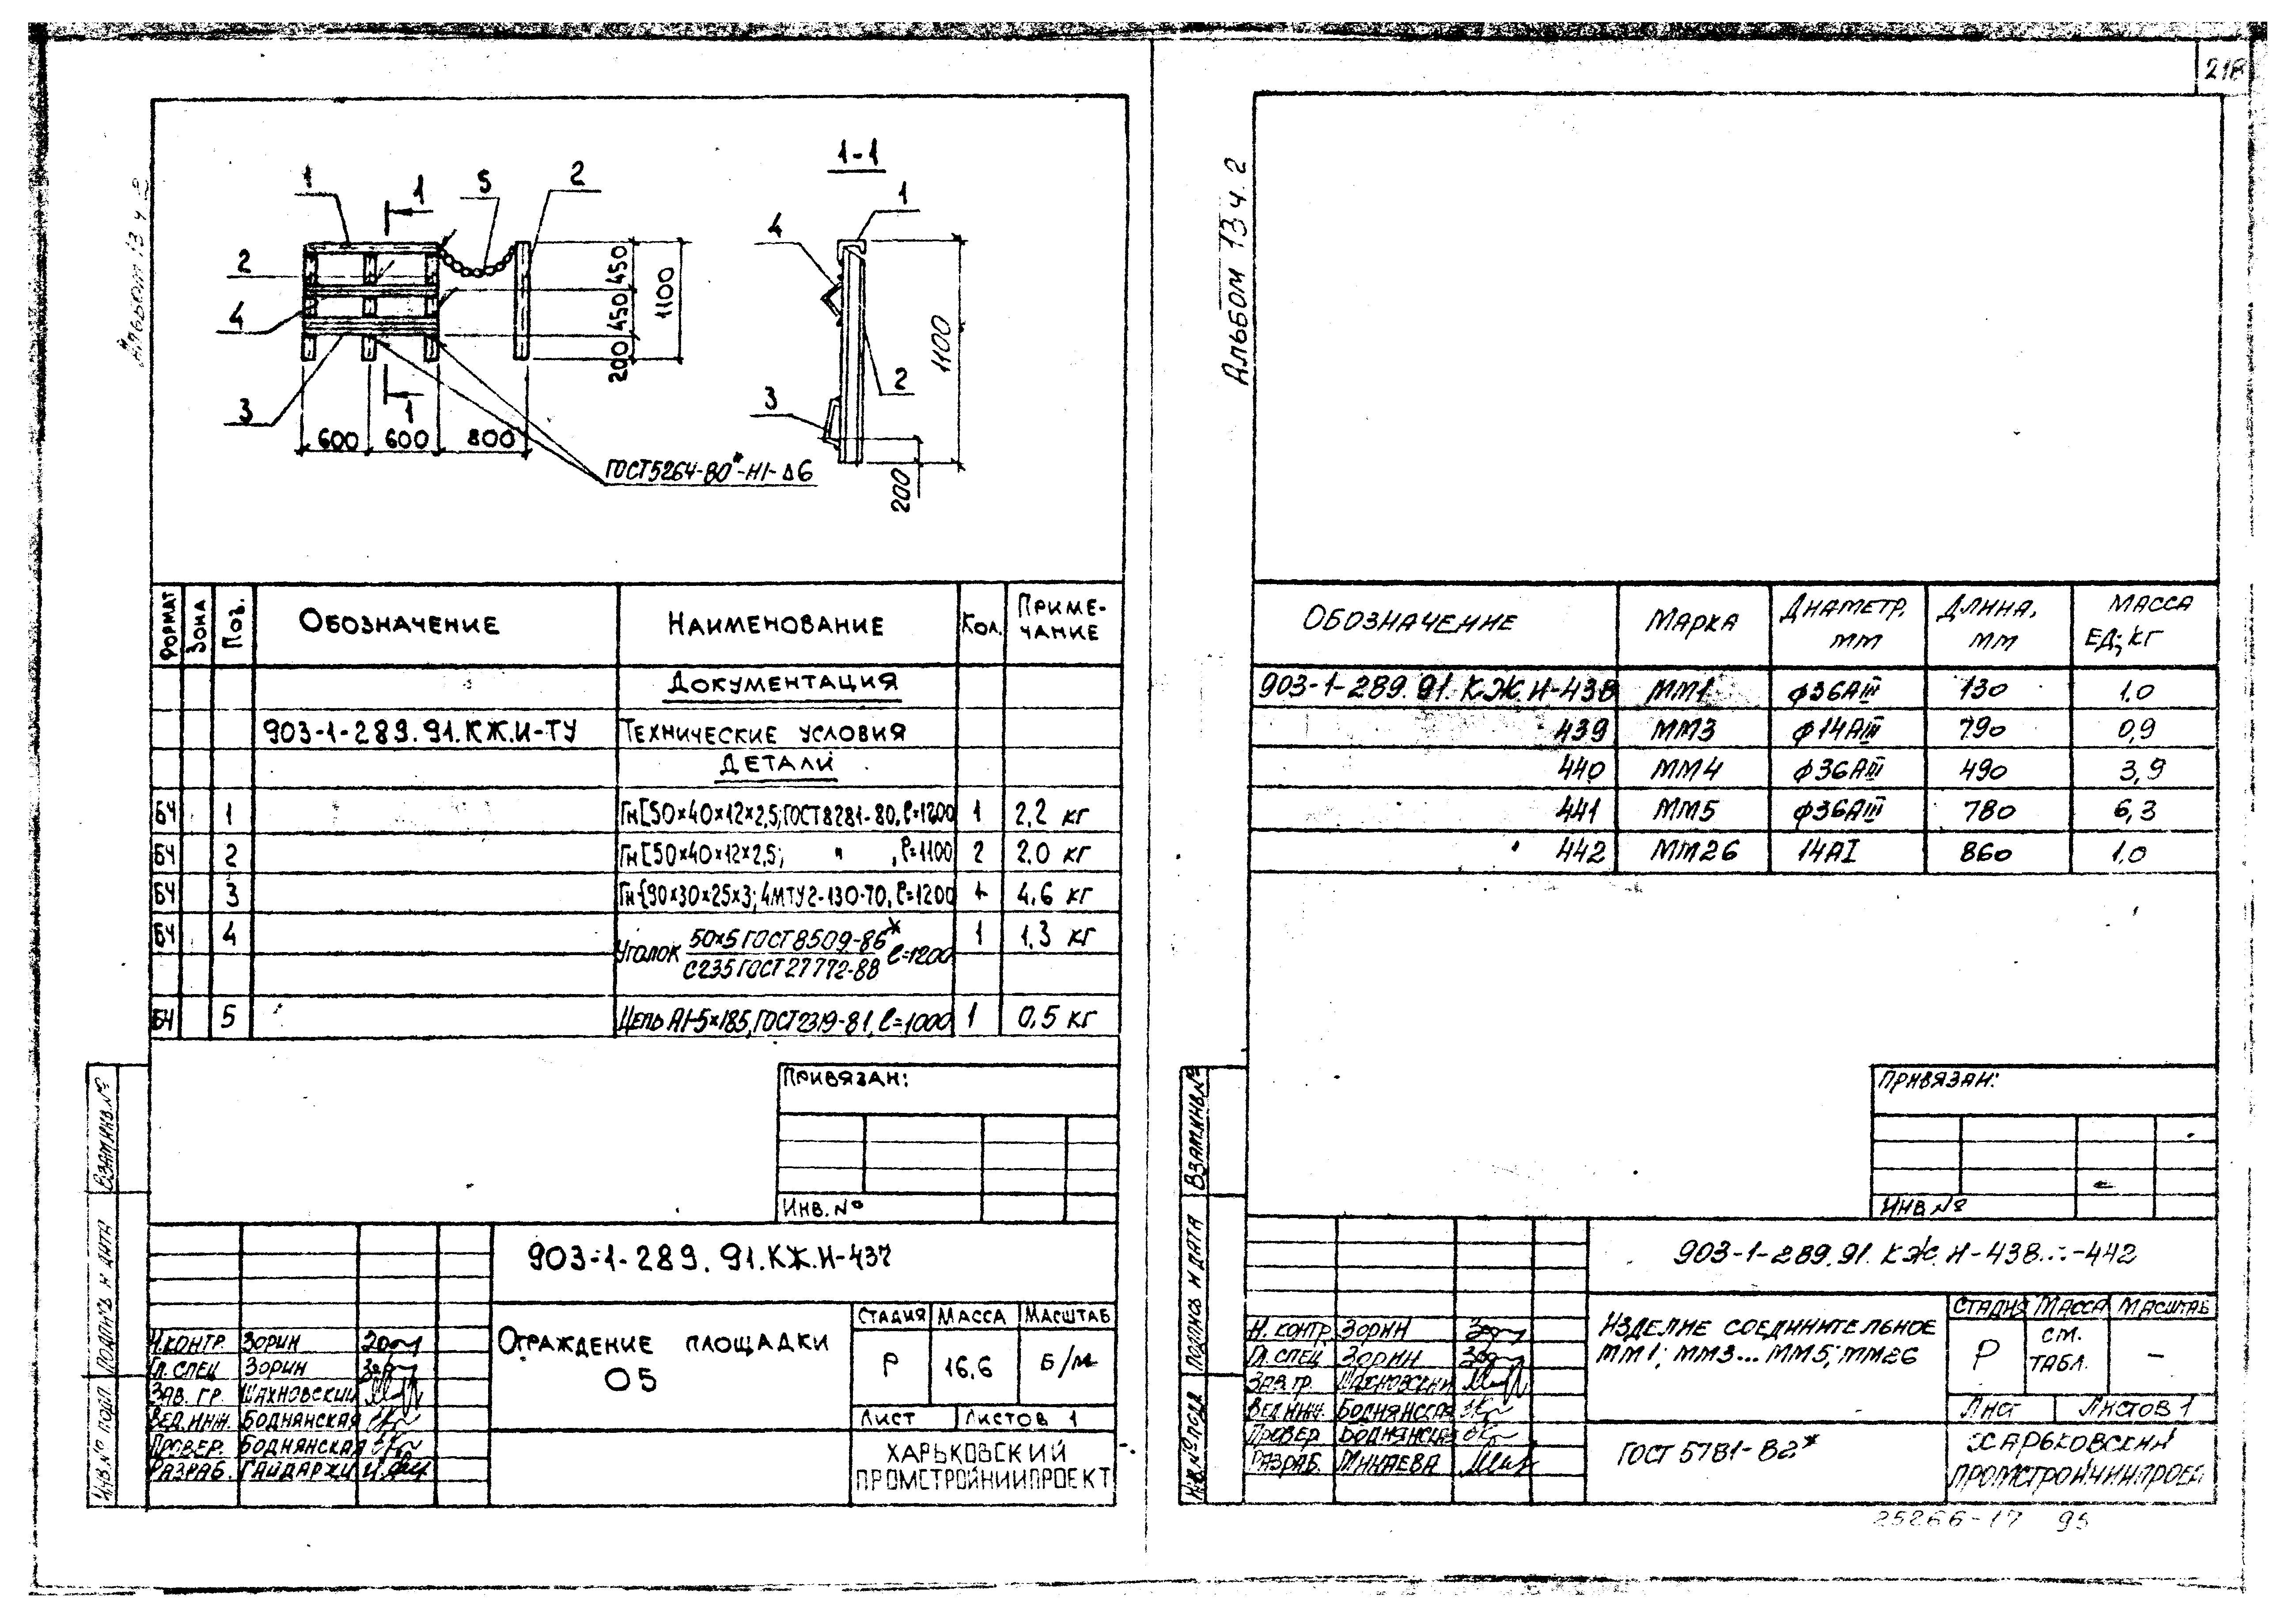 218
Альбом 13 ч. 2
1
1
5
2
2
4
3
1
450
450
200
1100
600
600
800
ГОСТ5264-80*-Н1-Δ6
1-1
1
4
2
3
1100
200
Формат
Зона
Поз.
Обозначение
Наименование
Кол.
Приме-
чание
Документация
903-1-289.91.КЖ.И-ТУ Технические условия
Детали
БЧ 1 Гн[50×40×12×2,5; ГОСТ8281-80, ℓ=1200 1 2,2 кг
БЧ 2 Гн[50×40×12×2,5; " , ℓ=1100 2 2.0 кг
БЧ 3 Гн{90×30×25×3; 4МТУ2-130-70, ℓ=1200 4,6 кг
БЧ 4 Уголок 50×5 ГОСТ8509-86* ℓ=1200 1 1,3 кг
С235 ГОСТ27772-88
БЧ 5 Цепь А1-5×18,5, ГОСТ2319-81, ℓ=1000 1 0,5 кг
Привязан:
Инв. №
Взам.инв.№
Подпись и дата
Инв.№ подл.
903-1-289.91.КЖ.И-437
Н.контр. Зорин
Гл. спец Зорин
Зав. гр. Шахновский
Вед.инж. Боднянская
Провер. Боднянская
Разраб. Гайдаржи
Ограждение площадки
О5
Стадия Масса Масштаб
Р 16,6 Б/м
Лист Листов 1
Харьковский
Промстройниипроект
Альбом 13 ч. 2
Обозначение
Марка
Диаметр,
мм
Длина,
мм
Масса
ед; кг
903-1-289.91.КЖ.И-438 ММ1 ф36АIII 130 1.0
439 ММ3 ф14АIII 790 0,9
440 ММ4 ф36АIII 490 3,9
441 ММ5 ф36АIII 780 6,3
442 ММ26 14АI 860 1,0
Привязан:
Инв.№
Взам.инв.№
Подпись и дата
Инв.№ подл
903-1-289.91.КЖ.И-438...-442
Н. контр Зорин
Гл. спец Зорин
Зав. гр. Шахновский
Вед инж. Боднянская
Провер Боднянская
Разраб. Минаева
Изделие соединительное
ММ1; ММ3...ММ5; ММ26
Стадия Масса Масштаб
Р см.
табл. –
Лист Листов 1
ГОСТ 5781-82*
Харьковский
Промстройниипроек
25266-17 95